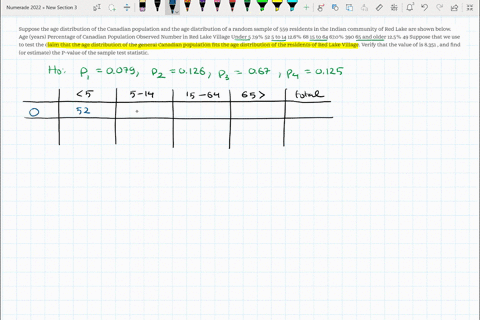 Numerade 2022 » New Section 3
Suppose the age distribution of the Canadian population and the age distribution of a random sample of 559 residents in the Indian community of Red Lake are shown below.
Age (years) Percentage of Canadian Population Observed Number in Red Lake Village Under 5 7.9% 52 5 to 14 12.6% 68 15 to 64 67.0% 390 65 and older 12.5% 49 Suppose that we use
to test the claim that the age distribution of the general Canadian population fits the age distribution of the residents of Red Lake Village. Verify that the value of is 8.351 , and find
(or estimate) the P-value of the sample test statistic.
Ho: P1 = 0.079, P2 = 0.126, P3 = 0.67, P4 = 0.125
<5 5-14 15-64 65> total
O 52